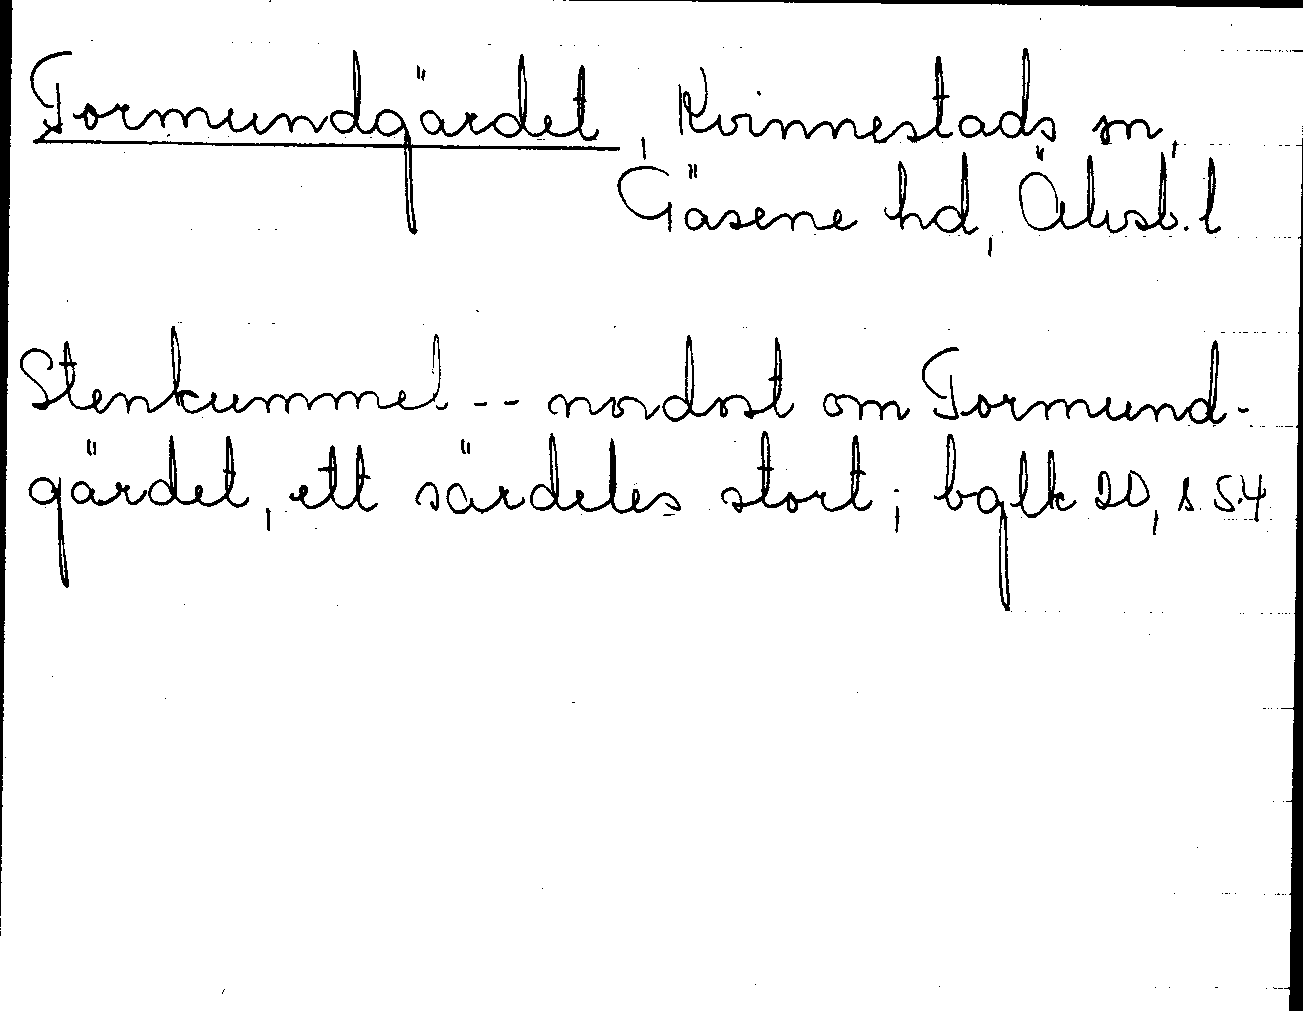 Tormundgärdet, Kvinnestads sn,
Gäsene hd, Älvsb. l
Stenkummel -- nordost om Tormund-
gärdet, ett särdeles stort; bglk 20, s. 54